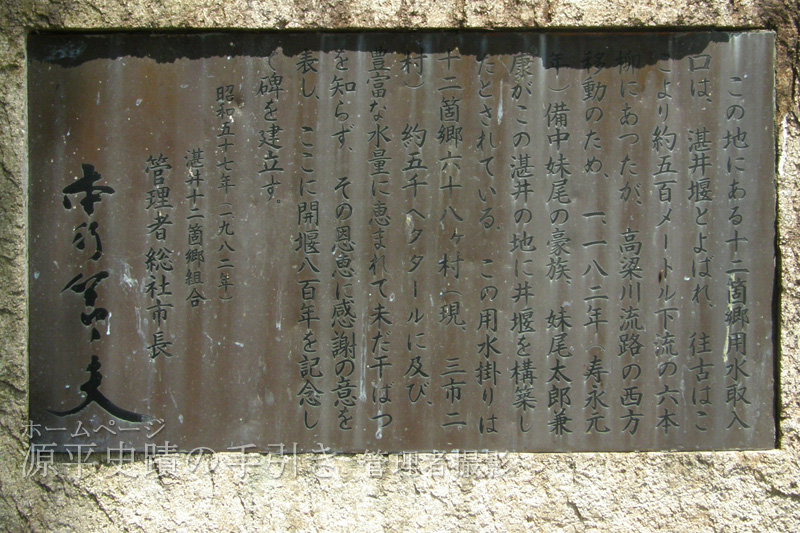 この地にある十二箇郷用水取入
口は、湛井堰とよばれ、往古はこ
こより約五百メートル下流の六本
柳にあつたが、高梁川流路の西方
移動のため、一一八二年（寿永元
年）備中妹尾の豪族、妹尾太郎兼
康がこの湛井の地に井堰を構築し
たとされている。この用水掛りは
十二箇郷六十八ヶ村（現、三市二
村）約五千ヘクタールに及び、
豊富な水量に恵まれて未だ干ばつ
を知らず、その恩恵に感謝の意を
表し、ここに開堰八百年を記念し
て碑を建立す。
昭和五十七年（一九八二年）
湛井十二箇郷組合
管理者総社市長
本行節夫
ホームページ
源平史晴の手引き 管理者撮影